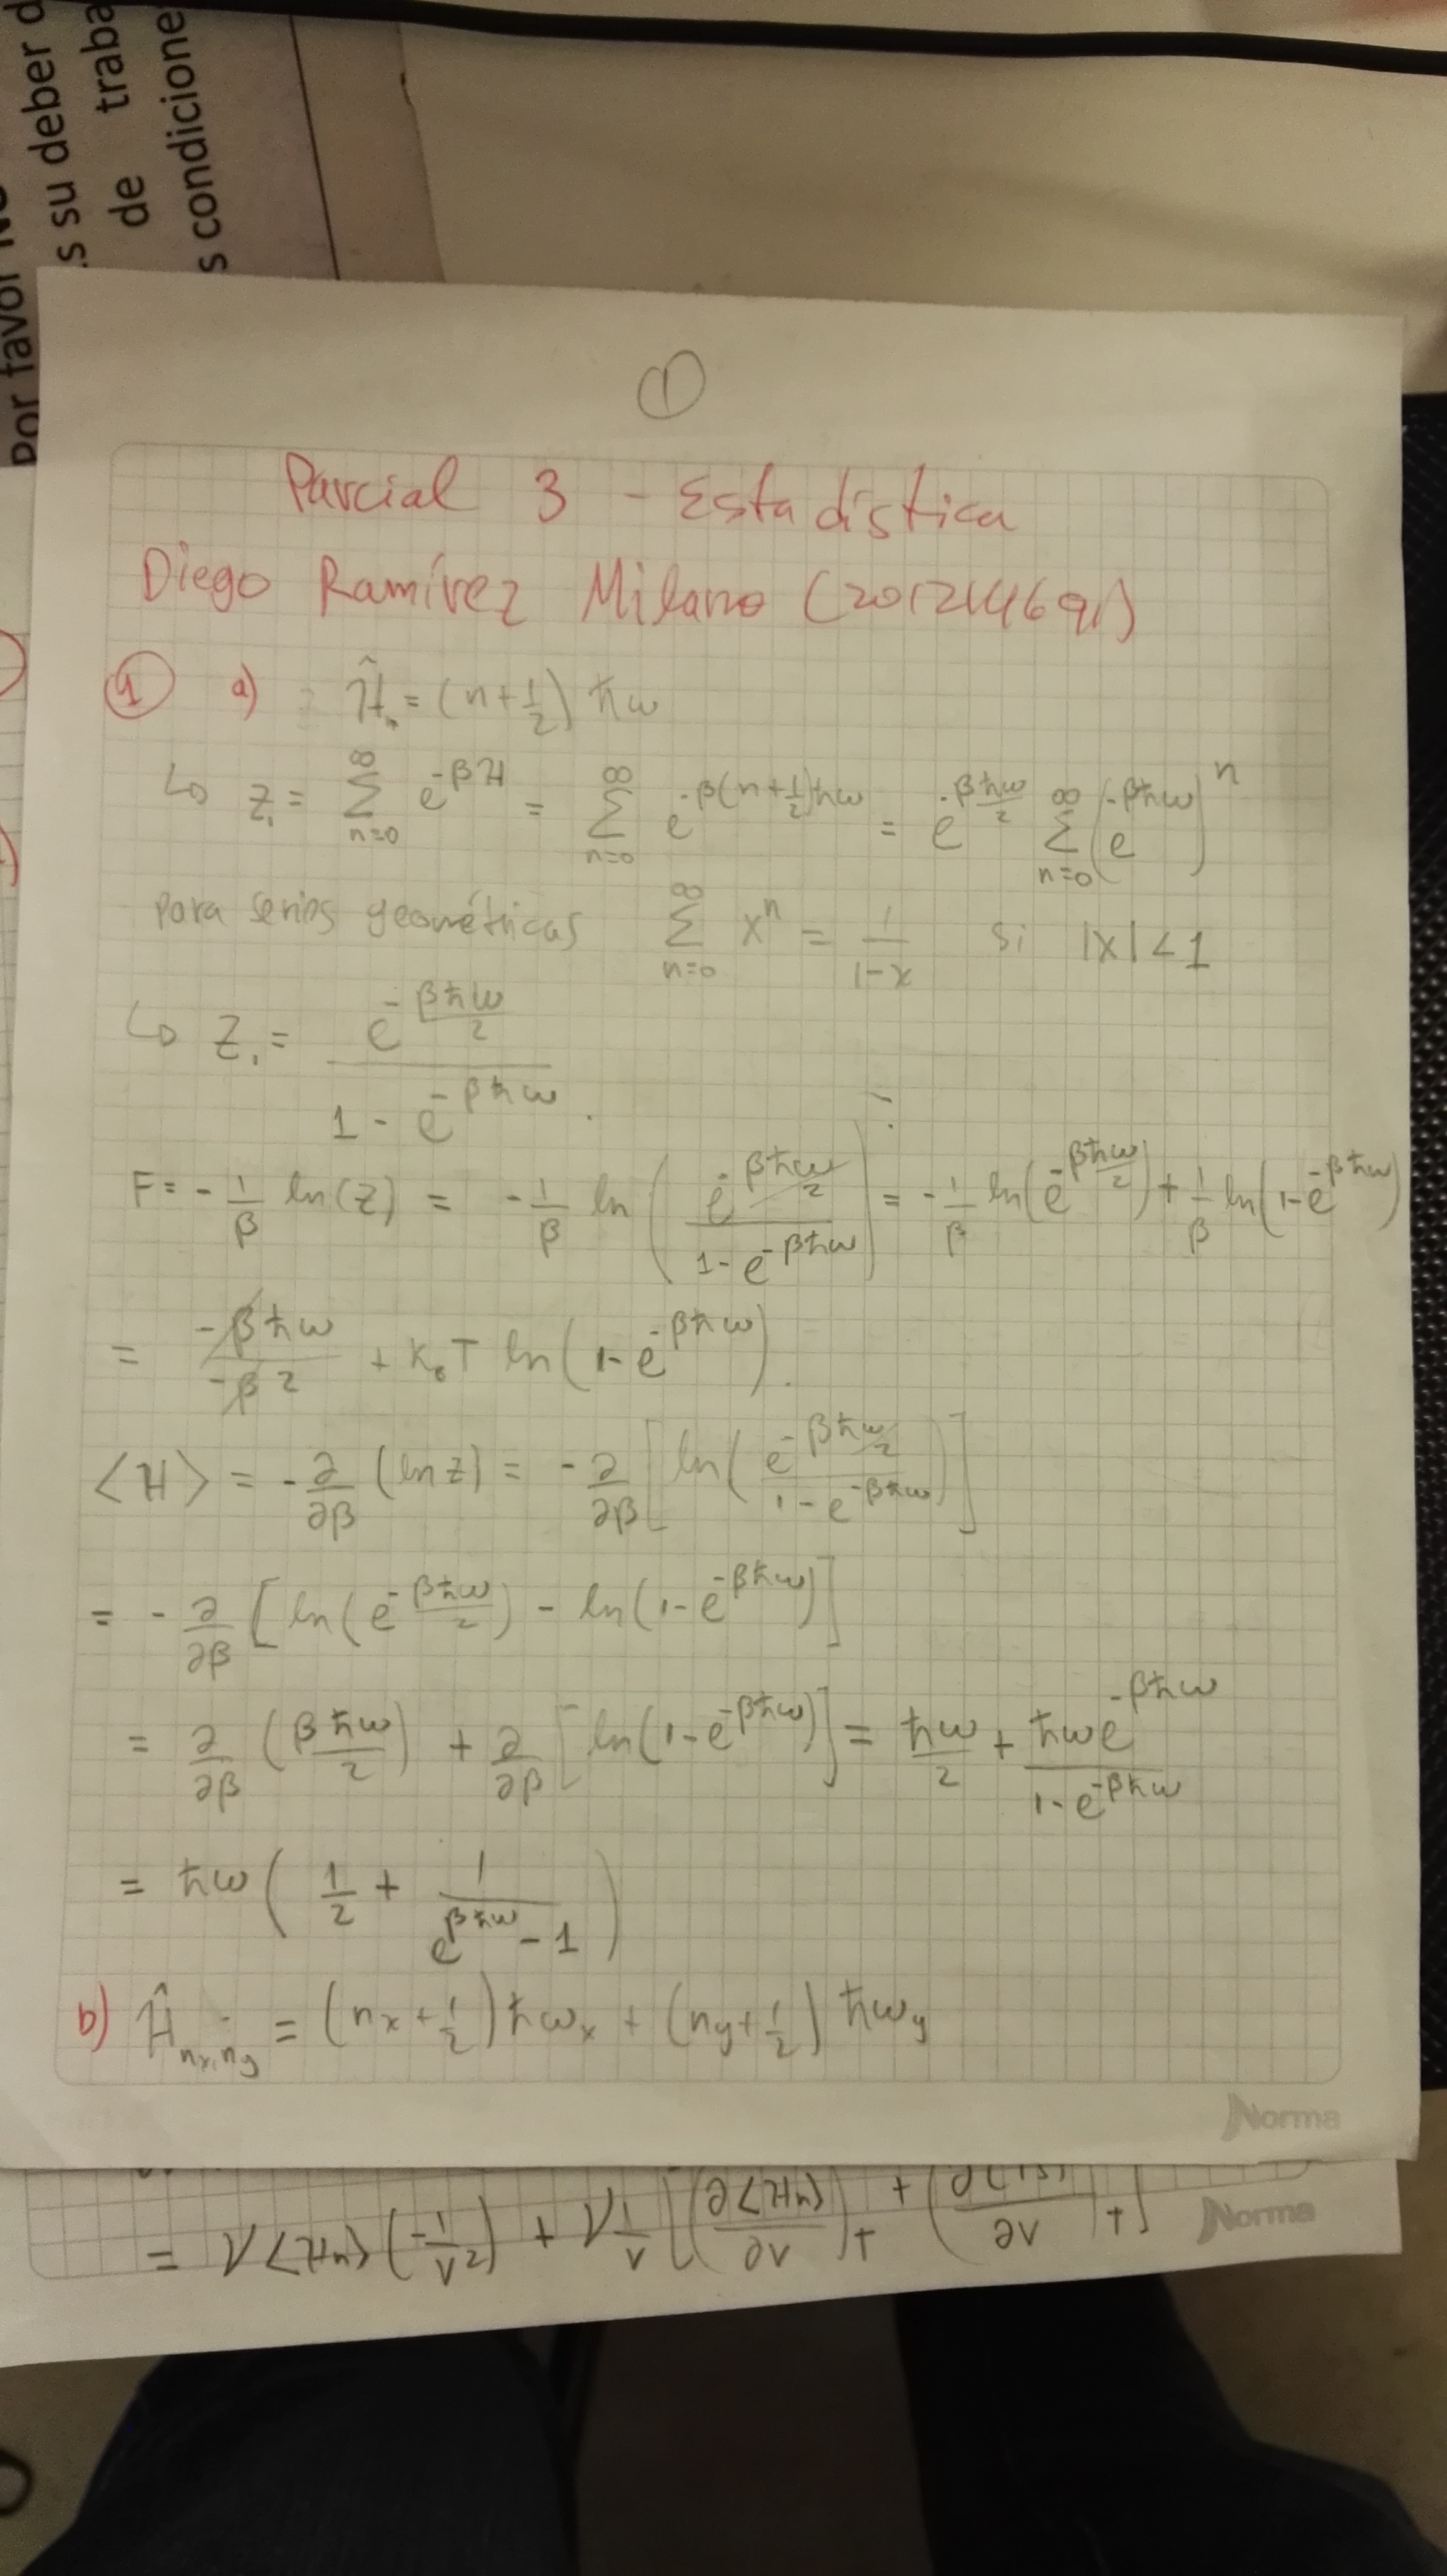 Por favor
s su deber d
de traba
s condicione
①
Parcial 3 - Estadística
Diego Ramírez Milano (201214691)
① a) Ĥₙ = (n+1/2) ħω
↳ Z₁ = Σ_{n=0}^{∞} e^{-βH} = Σ_{n=0}^{∞} e^{-β(n+1/2)ħω} = e^{-βħω/2} Σ_{n=0}^{∞} (e^{-βħω})^n
para series geométricas Σ_{n=0}^{∞} x^n = 1/(1-x) si |x| < 1
↳ Z₁ = e^{-βħω/2} / (1 - e^{-βħω}).
F = -1/β ln(Z) = -1/β ln(e^{-βħω/2} / (1-e^{-βħω})) = -1/β ln(e^{-βħω/2}) + 1/β ln(1-e^{-βħω})
= -βħω/(-β2) + K_B T ln(1-e^{-βħω}).
<H> = -∂/∂β (ln Z) = -∂/∂β [ln(e^{-βħω/2} / (1-e^{-βħω}))]
= -∂/∂β [ln(e^{-βħω/2}) - ln(1-e^{-βħω})]
= ∂/∂β (βħω/2) + ∂/∂β [ln(1-e^{-βħω})] = ħω/2 + ħωe^{-βħω}/(1-e^{-βħω})
= ħω(1/2 + 1/(e^{βħω}-1))
b) Ĥ_{nx,ny} = (nx+1/2)ħωx + (ny+1/2)ħωy
Norma
Norma